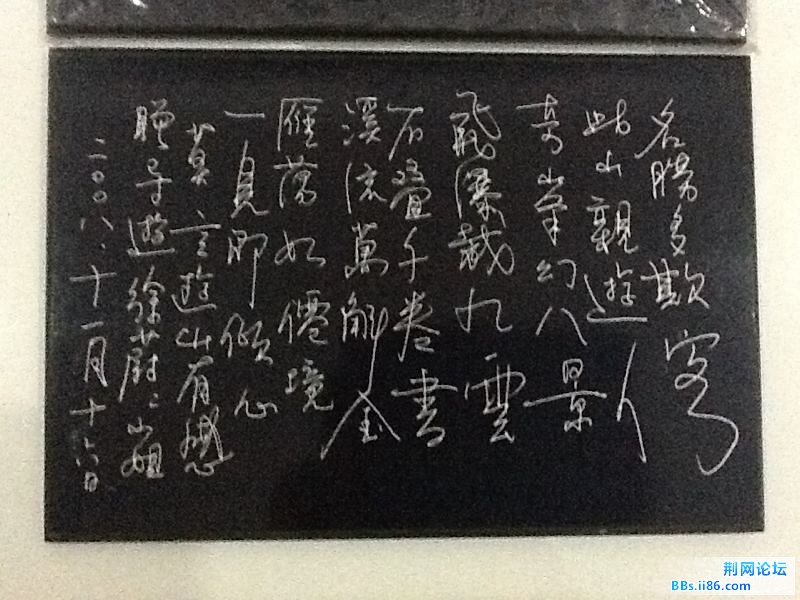 名勝多欺客
此山親遊人
奇峯幻八景
飛瀑裁九雲
石疊千卷書
溪流萬斛金
雁蕩如僊境
一見即傾心
遊山有感
贈导遊徐蔚蔚小姐
二〇〇八.十一月十六日
荆网论坛
BBs.ii86.com